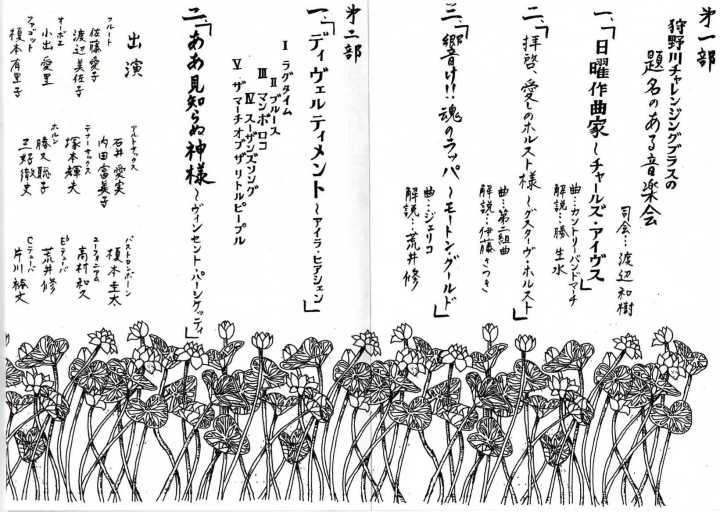 第一部
狩野川チャレンジングブラスの
題名のある音楽会
司会…渡辺和樹
一、「日曜作曲家～チャールズ・アイヴス」
曲…カントリーバンドマーチ
解説…勝 生水
二、「拝啓、愛しのホルスト様～グスターヴ・ホルスト」
曲…第二組曲
解説…伊藤さつき
三、「響け!!魂のラッパ～モートン・グールド」
曲…ジェリコ
解説…荒井修
第二部
一、「ディヴェルティメント～アイラ・ヒアシェン」
Ⅰ ラグタイム
Ⅱ ブルース
Ⅲ マンボロコ
Ⅳ スーザンズソング
Ⅴ ザマーチオブザリトルピープル
二、「ああ見知らぬ神様～ヴィンセント・パーシケッティ」
出演
フルート
佐藤愛子
渡辺美佐子
オーボエ
小出愛里
ファゴット
榎本有里子
アルトサックス
石井愛実
内田富美子
テナーサックス
塚本輝夫
ホルン
勝又聡子
三好徹史
バストロンボーン
榎本圭太
ユーフォニアム
高村和久
E♭テューバ
荒井修
Cテューバ
片川裕文